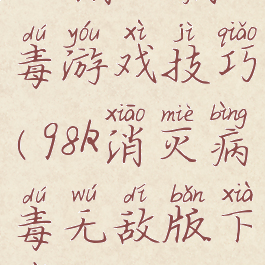 dú yóu xì jì qiǎo
毒游戏技巧
xiāo miè bìng
(98k消灭病
dú wú dí bǎn xià
毒无敌版下